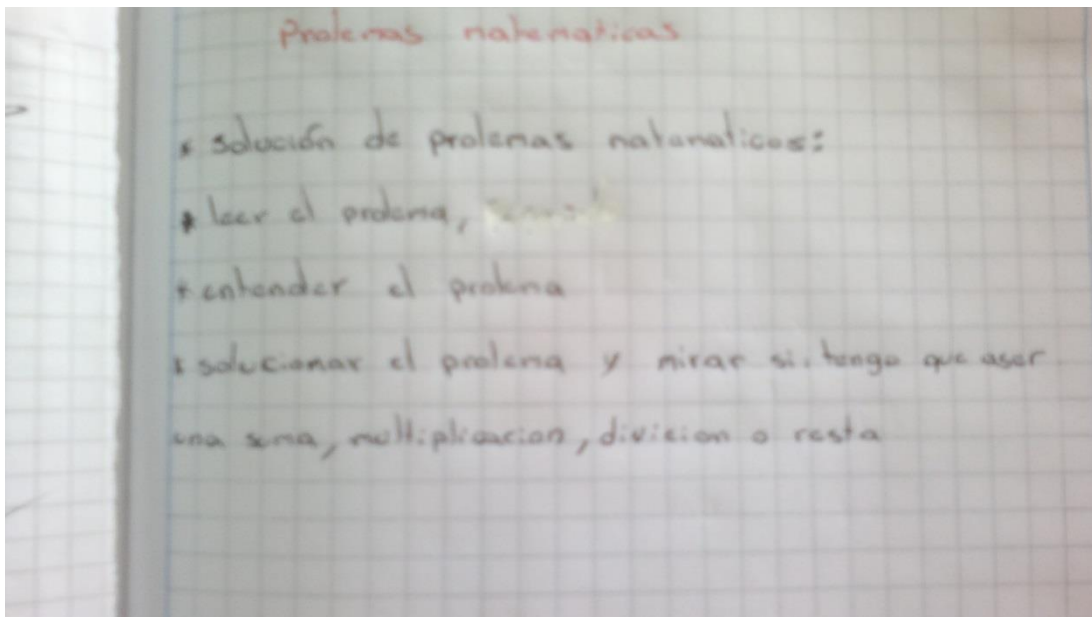 Prolemas natenaticas
* solución de prolemas natematicos:
* leer el prolema,
* entender el prolema
* solucionar el prolema y mirar si tengo que aser
una suma, multiplicacion, divicion o resta